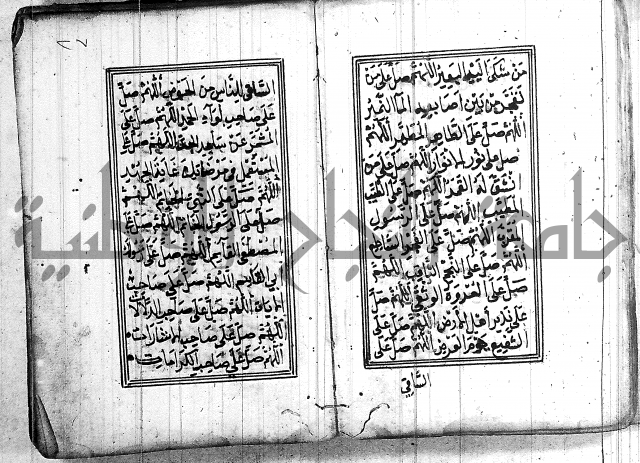 من شكى اليه البعير اللهم صل على من
تفجر من بين اصابعه الماء النمير
اللهم صل على الطاهر المطهر اللهم
صل على نور الانوار اللهم صل على من
انشق له القمر اللهم صل على الطيب
المطيب اللهم صل على الرسول
المقرب اللهم صل على الفجر الساطع
اللهم صل على النجم الثاقب اللهم
صل على العروة الوثقى اللهم صل
على نذير اهل الارض اللهم صل على
الشفيع يوم العرض اللهم صل على
الساقي
الساقي للناس من الحوض اللهم صل
على صاحب لواء الحمد اللهم صل على
المشمر عن ساعد الجد اللهم صل على
المستعمل في مرضاتك غاية الجهد
اللهم صل على النبي الخاتم اللهم
صل على الرسول الخاتم اللهم صل على
المصطفى القائم اللهم صل على رسولك
ابي القاسم اللهم صل على صاحب
الايات اللهم صل على صاحب الدلالات
اللهم صل على صاحب الاشارات
اللهم صل على صاحب الكرامات
جامعة النجاح الوطنية